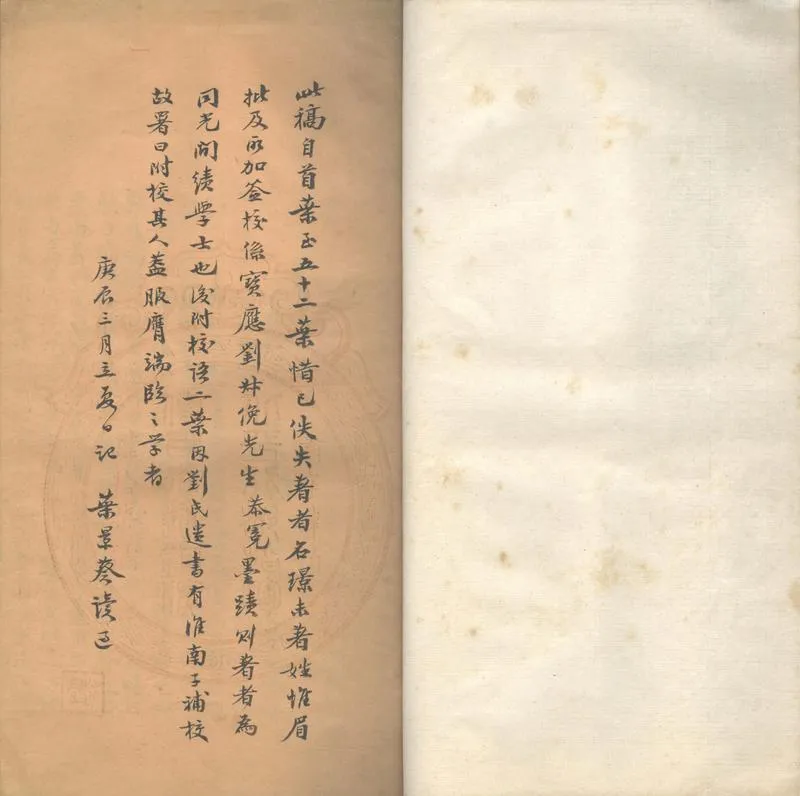 此稿自首葉至五十二葉惜已佚失著者名璟未著姓惟眉
批及所加签校係寶應劉叔俛先生恭冕墨蹟則著者為
同光間績學士也後附校語二葉因劉氏遺書有淮南子補校
故署曰附校其人蓋服膺端臨之学者
庚辰三月立夏日記 葉景葵讀过